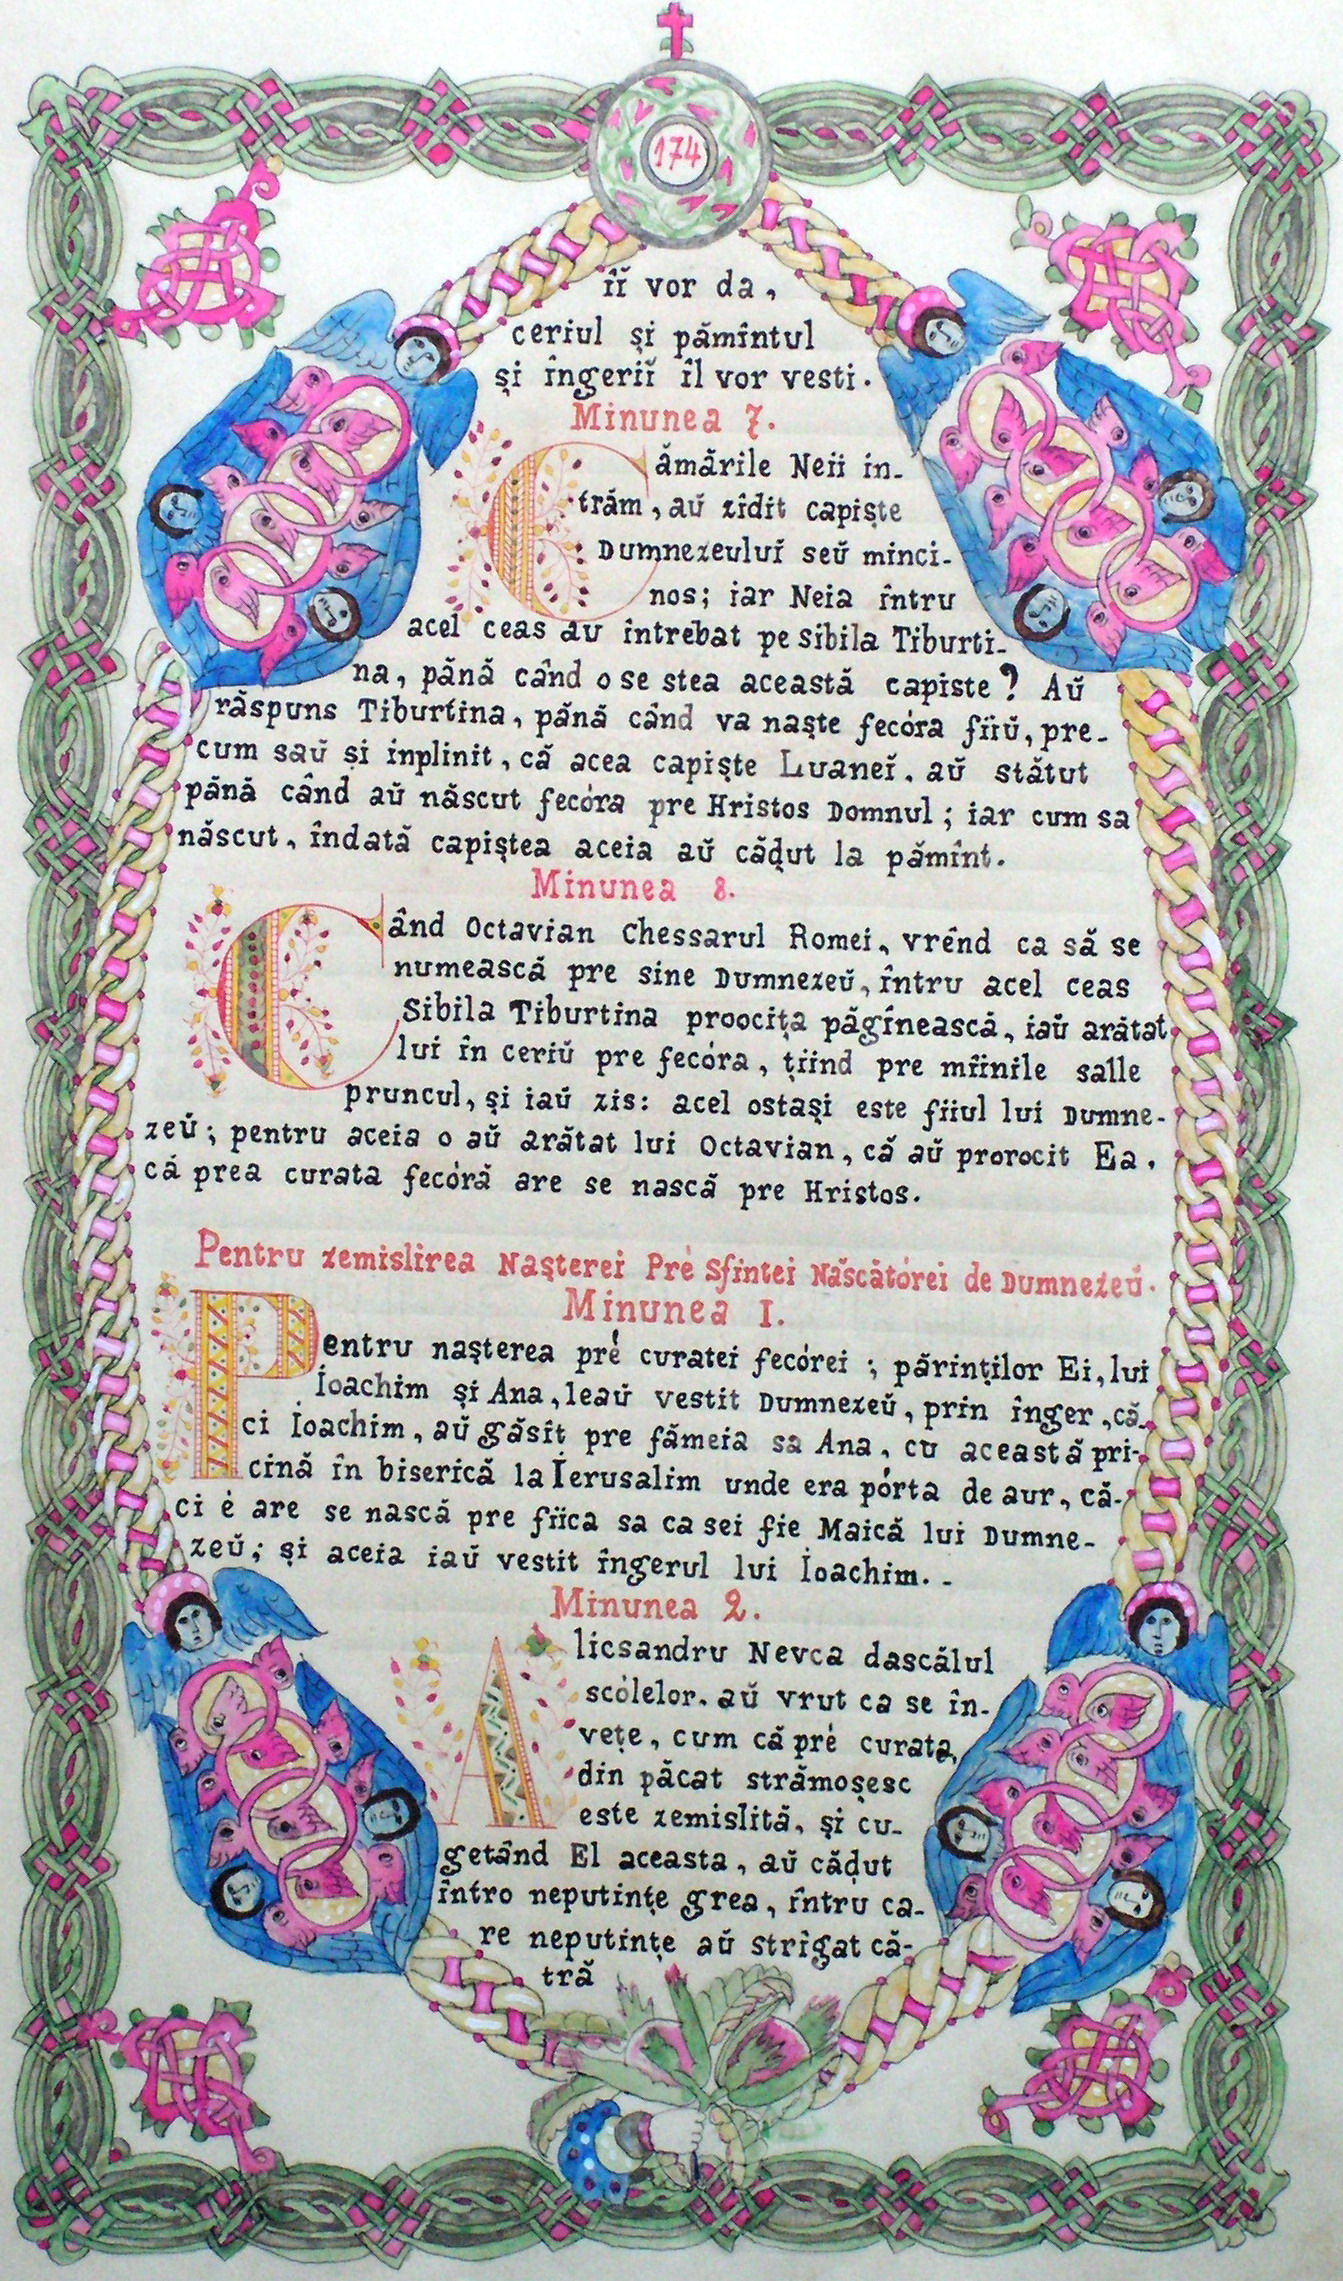 174
ĭĭ vor da,
ceriul și pămîntul
și îngeriĭ îl vor vesti.
Minunea 7.
Cămările Neii in-
trăm, aŭ zîdit capiște
Dumnezeuluĭ seŭ minci-
nos; iar Neia întru
acel ceas au întrebat pe Sibila Tiburti-
na, pănă când o se stea această capiste? Aŭ
răspuns Tiburtina, pănă când va naște fecóra fiiŭ, pre-
cum saŭ și inplinit, că acea capiște Luaneĭ. aŭ stătut
pănă când aŭ născut fecóra pre Hristos Domnul; iar cum sa
născut, îndată capiștea aceia aŭ cădut la pămînt.
Minunea 8.
Când Octavian Chessarul Romei, vrênd ca să se
numească pre sine Dumnezeŭ, întru acel ceas
Sibila Tiburtina proocița păgînească, iaŭ arătat
lui în ceriŭ pre fecóra, țiind pre mîinile salle
pruncul, și iaŭ zis: acel ostași este fiiul lui Dumne-
zeŭ; pentru aceia o aŭ arătat lui Octavian, că aŭ prorocit Ea,
că prea curata fecóră are se nască pre Hristos.
Pentru zemislirea Nașterei Pré Sfintei Născătórei de Dumnezeŭ.
Minunea 1.
Pentru nașterea pré curatei fecórei; părinților Ei, lui
Ioachim și Ana, leaŭ vestit Dumnezeŭ, prin înger, că-
ci Ioachim, aŭ găsît pre fămeia sa Ana, cu această pri-
cină în biserică la Ierusalim unde era pórta de aur, că-
ci é are se nască pre fiica sa ca sei fie Maică lui Dumne-
zeŭ; și aceia iaŭ vestit îngerul lui Ioachim. -
Minunea 2.
Alicsandru Nevca dascălul
scólelor. aŭ vrut ca se în-
vețe, cum că pré curata,
din păcat strămoșesc
este zemislită, și cu-
getând El aceasta, aŭ cădut
întro neputințe grea, întru ca-
re neputințe aŭ strîgat că-
tră